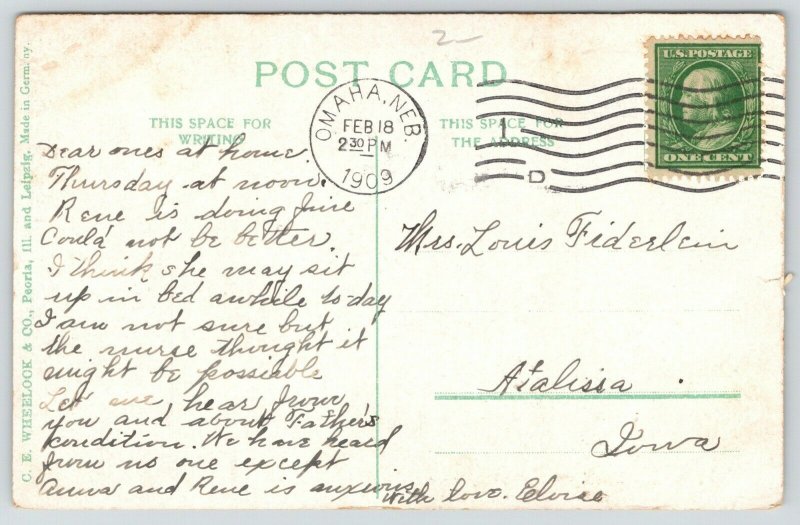 2
POST CARD
THIS SPACE FOR
WRITING
THIS SPACE FOR
THE ADDRESS
OMAHA, NEB.
FEB 18
2 30 PM
1909
1
D
U.S. POSTAGE
ONE CENT
C. E. WHEELOCK & CO., Peoria, Ill. and Leipzig. Made in Germany.
Dear ones at home
Thursday at noon.
Rene is doing fine
Could not be better.
I think she may sit
up in bed awhile to day
I am not sure but
the nurse thought it
might be possible
Let me hear from
you and about Father's
condition. We have heard
from no one except
Anna and Rene is anxious
With love. Eloise
Mrs. Louis Fiderlein
Atalissa
Iowa